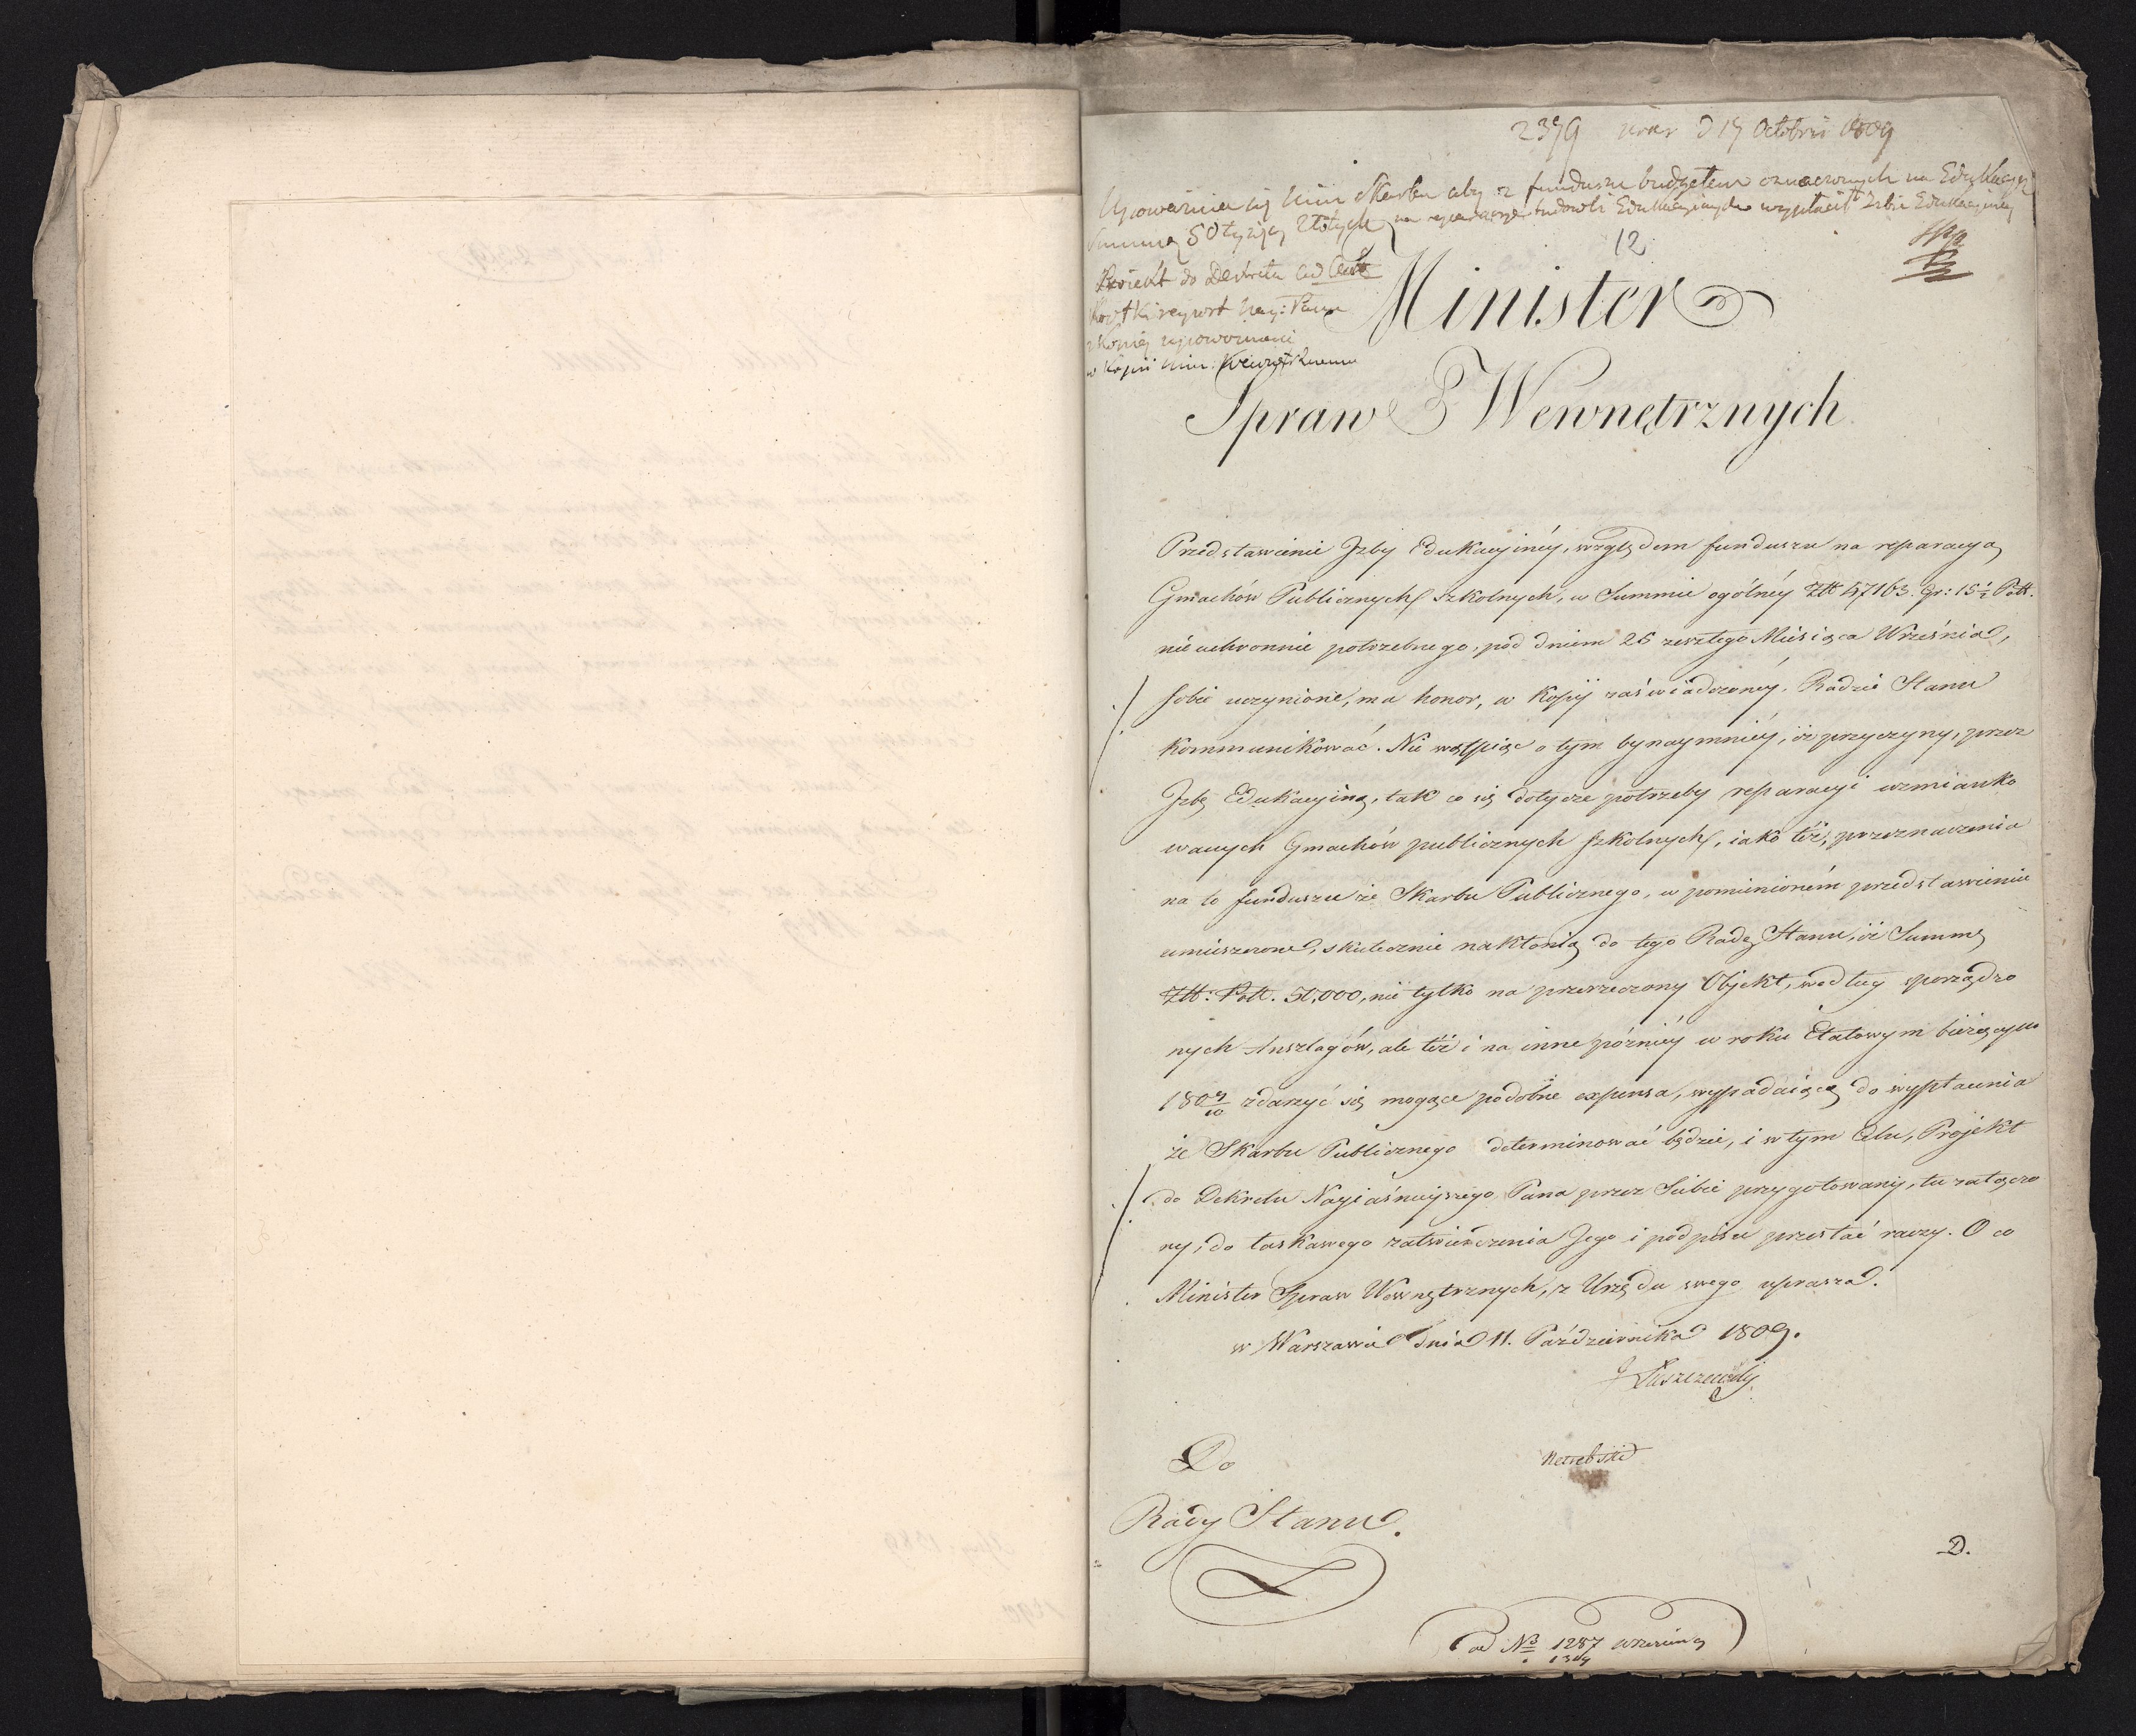 2379 prae d 17 Octobris 1809
Upoważnia się Min Skarbu aby z funduszu budżetem oznaczonych na Edukacyą
Summę 50 tysięcy Złotych na reparacye budowli Edukacyinych wypłacił Izbie Edukacyiney
12
Proiekt do Dekretu
Krótki raport Nay: Panu
w kopii Min: Wewnętrznemu
Minister
Spraw Wewnętrznych
Przedstawienie Izby Edukacyinéy, względem funduszu na reparacyą
Gmachów Publicznych Szkolnych, w Summie ogólnéy Złt 47163. gr: 15½ Poll.
nieuchronnie potrzebnego, pod dniem 26 zeszłego Miesiąca Września,
Sobie uczynione, ma honor, w Kopij zaświadczonéy, Radzie Stanu
kommunikować. Nie wątpiąc o tym bynaymniéy, iż przyczyny, przez
Izbę Edukacyiną, tak co się dotycze potrzeby reparacyi wzmianko
wanych Gmachów publicznych Szkolnych, iako też, przeznaczenia
na to funduszu ze Skarbu Publicznego, w pomienioném przedstawieniu
umieszczone, skutecznie nakłonią do tego Radę Stanu, iż Summę
Złt: Poll. 50,000, nie tylko na przerzeczony Objekt, według sporządzo
nych Anszlagów, ale też i na inne późniéy w roku Etatowym bieżącym
1809/10 zdarzyć się mogące podobne expensa, wypadaiącą do wypłacenia
ze Skarbu Publicznego determinować będzie, i w tym Celu, Projekt
do Dekretu Nayiaśnieyszego Pana przez Siebie przygotowany, tu załączo
ny, do łaskawego zatwierdzenia Jego i podpisu przesłać raczy. O co
Minister Spraw Wewnętrznych, z Urzędu swego uprasza.
w Warszawie dnia 11. Października 1809.
J Łuszczewski
Do
Rady Stanu.
D.
ad No 1287 wrzesnia